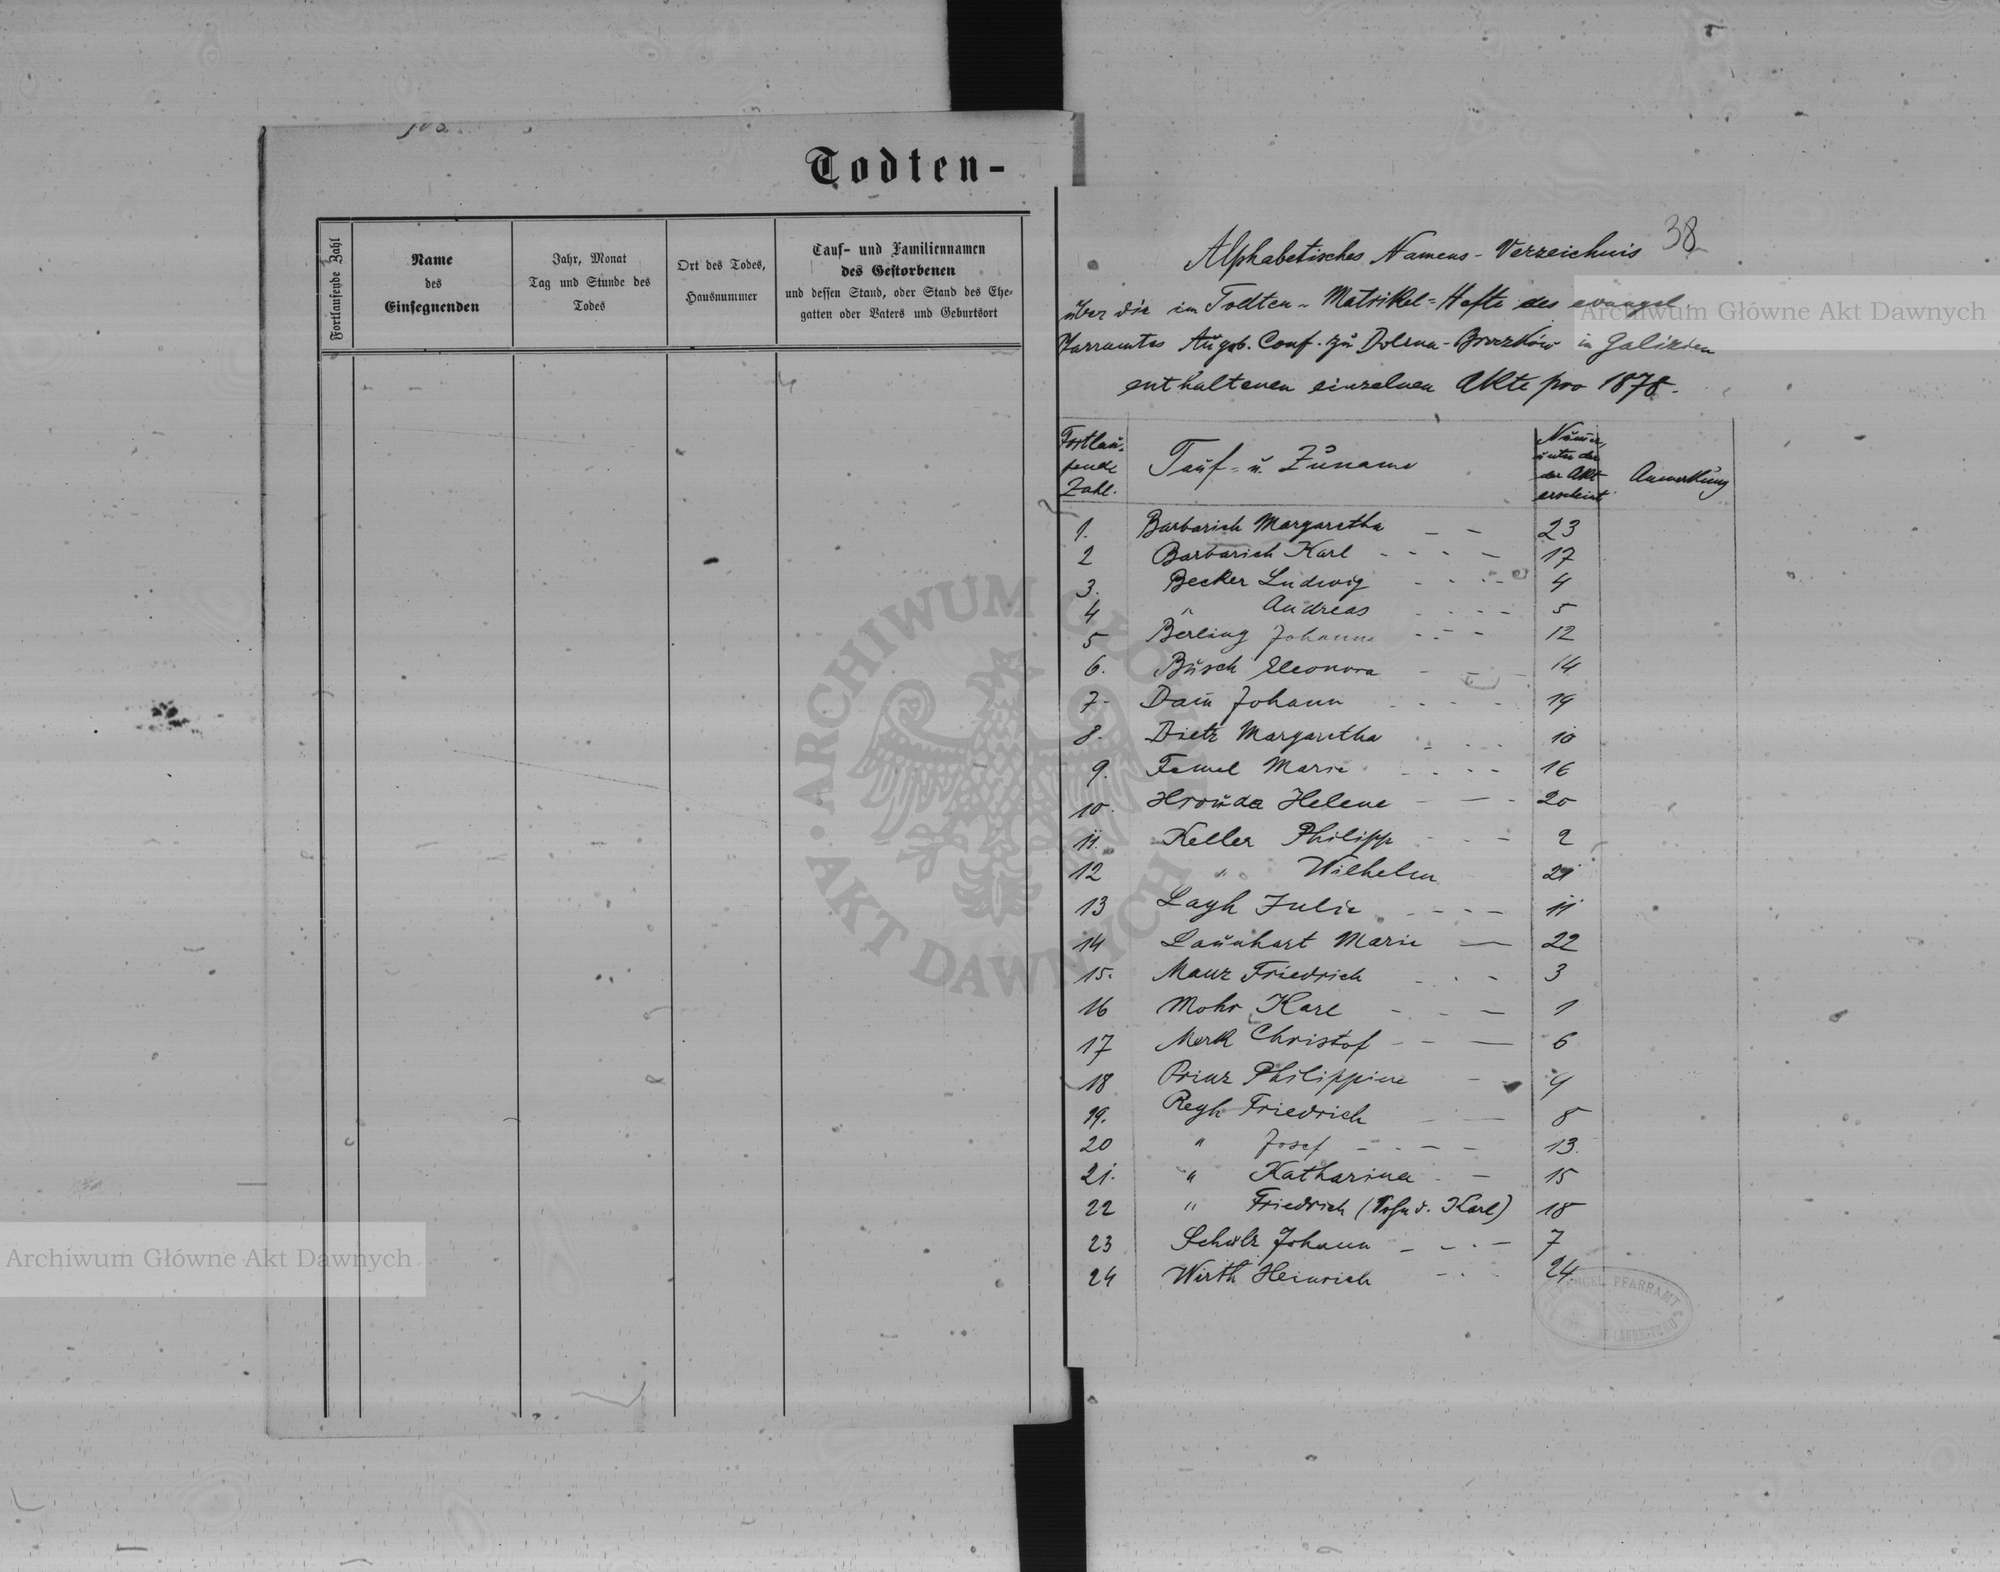 Todten-
Fortlaufende Zahl
Name
des
Einsegnenden
Jahr, Monat
Tag und Stunde des
Todes
Ort des Todes,
Hausnummer
Tauf- und Familiennamen
des Gestorbenen
und dessen Stand, oder Stand des Ehe-
gatten oder Vaters und Geburtsort
38
Alphabetisches Namens-Verzeichnis
über die im Todten-Matrikel-Hefte des evangel.
Pfarramtes Augsb. Conf. zu Dolina-Broczków in Galizien
enthaltenen einzelnen Akte pro 1878.
Fortlau-
fende
Zahl.
Tauf- u. Zuname
unter der
der Akt
erscheint
Anmerkung
1. Barbarich Margaretha - - 23
2 Barbarich Karl - - - - 17
3. Becker Ludwig - - - - 4
4 " Andreas - - - - 5
5 Berling Johann - - - 12
6. Busch Eleonora - - - 14
7- Daum Johann - - - - 19
8. Dietz Margaretha - - - 10
9. Femel Marie - - - - 16
10. Hrouda Helene - - - 20
11. Keller Philipp - - 2
12 " Wilhelm 21
13 Layh Julie - - - - 11
14 Launhart Marie - 22
15. Manz Friedrich - - - 3
16 Mohr Karl - - - 1
17 Merk Christof - - - 6
18 Prinz Philippine - - 9
19. Regh Friedrich - - 8
20 " Josef - - - - 13.
21. " Katharina - - 15
22 " Friedrich (Sohn d. Karl) 18
23 Schulz Johann - - - - 7
24 Wirth Heinrich - - - 24.
PFARRAMT
Archiwum Główne Akt Dawnych
Archiwum Główne Akt Dawnych
ARCHIWUM GŁÓWNE
AKT DAWNYCH